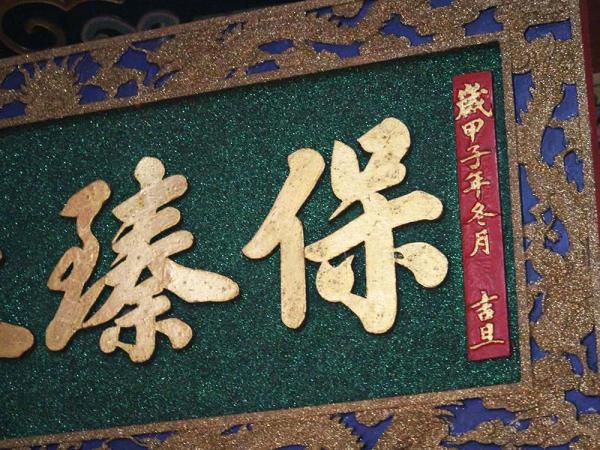 歲甲子年冬月 吉旦
保臻